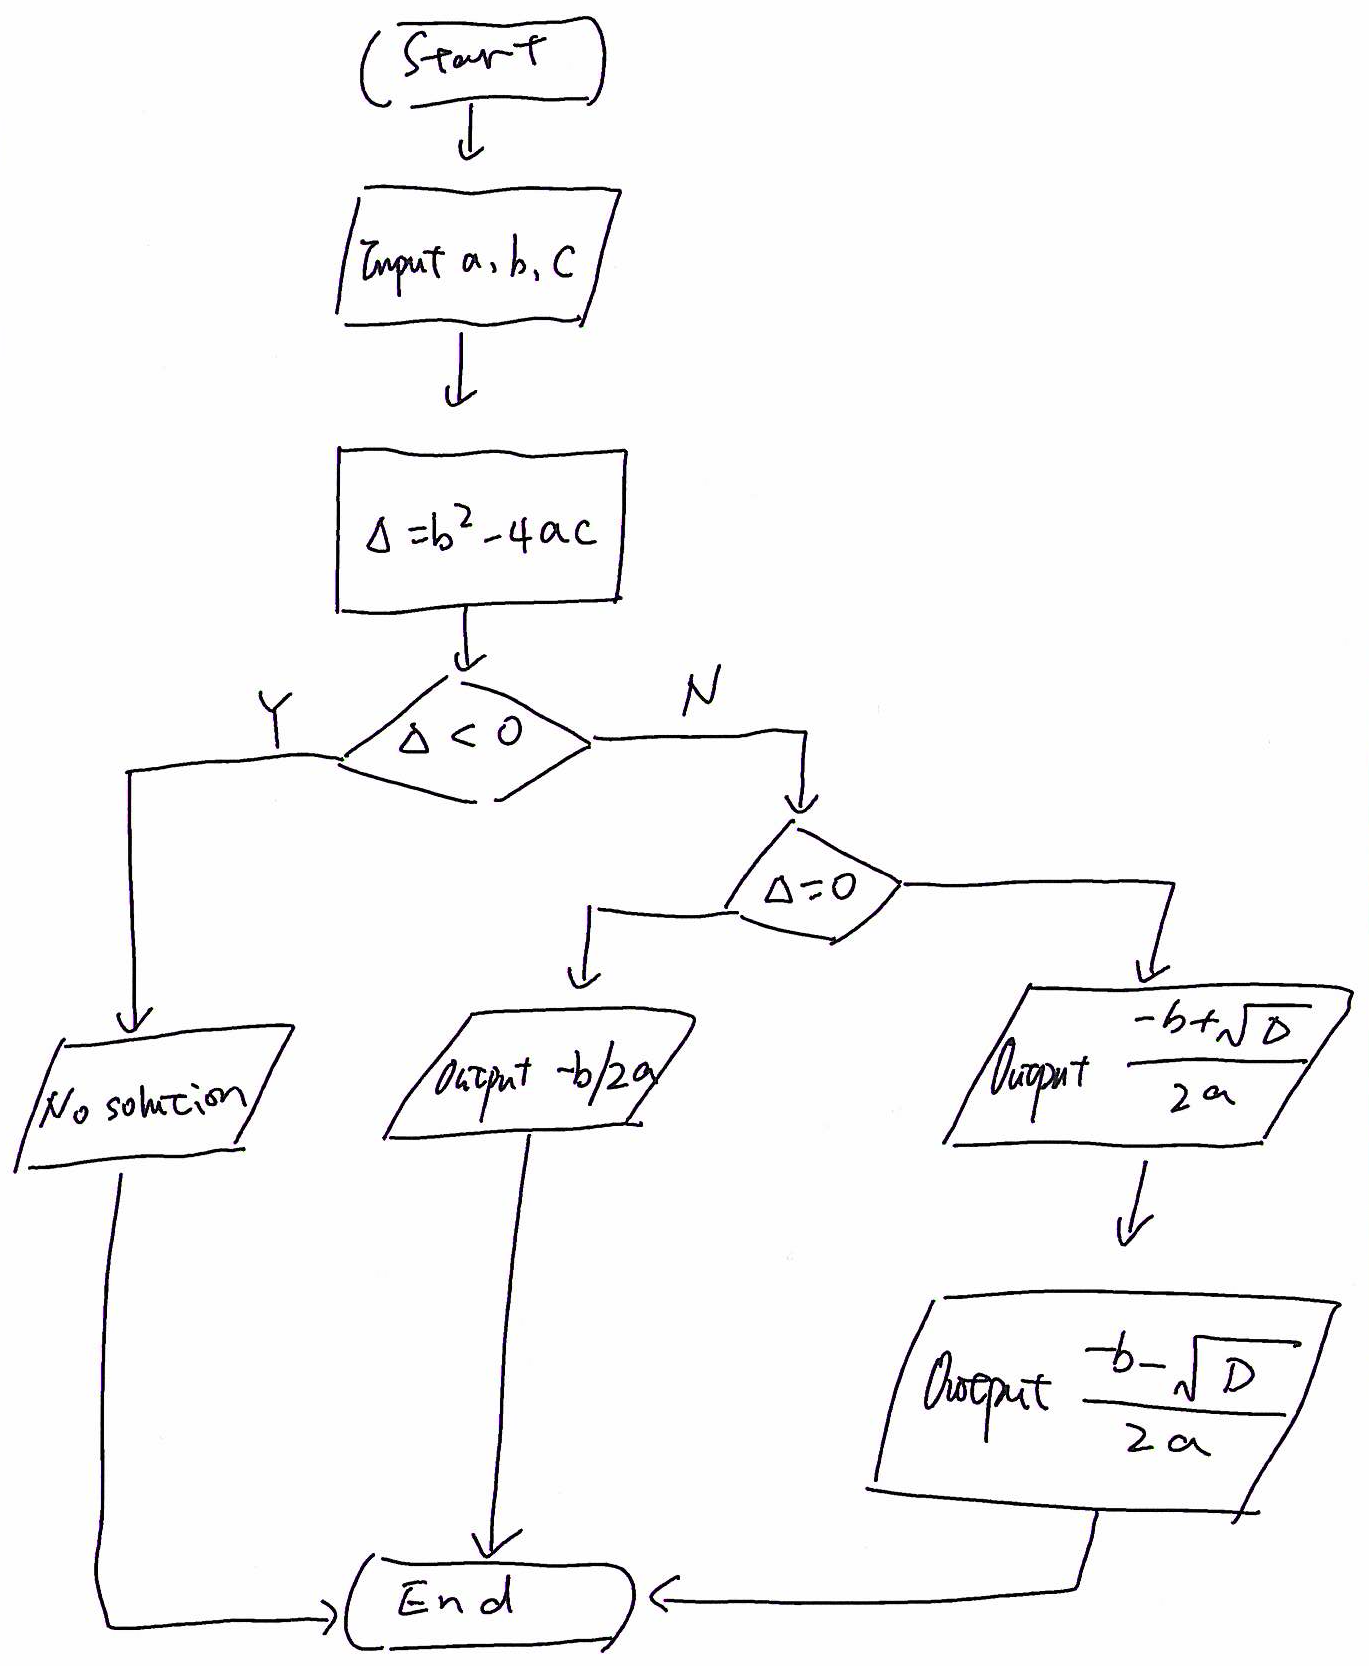 Start
Input a, b, c
Δ=b²-4ac
Y
N
Δ < 0
Δ=0
No solution
Output -b/2a
Output (-b+√D)/2a
Output (-b-√D)/2a
End